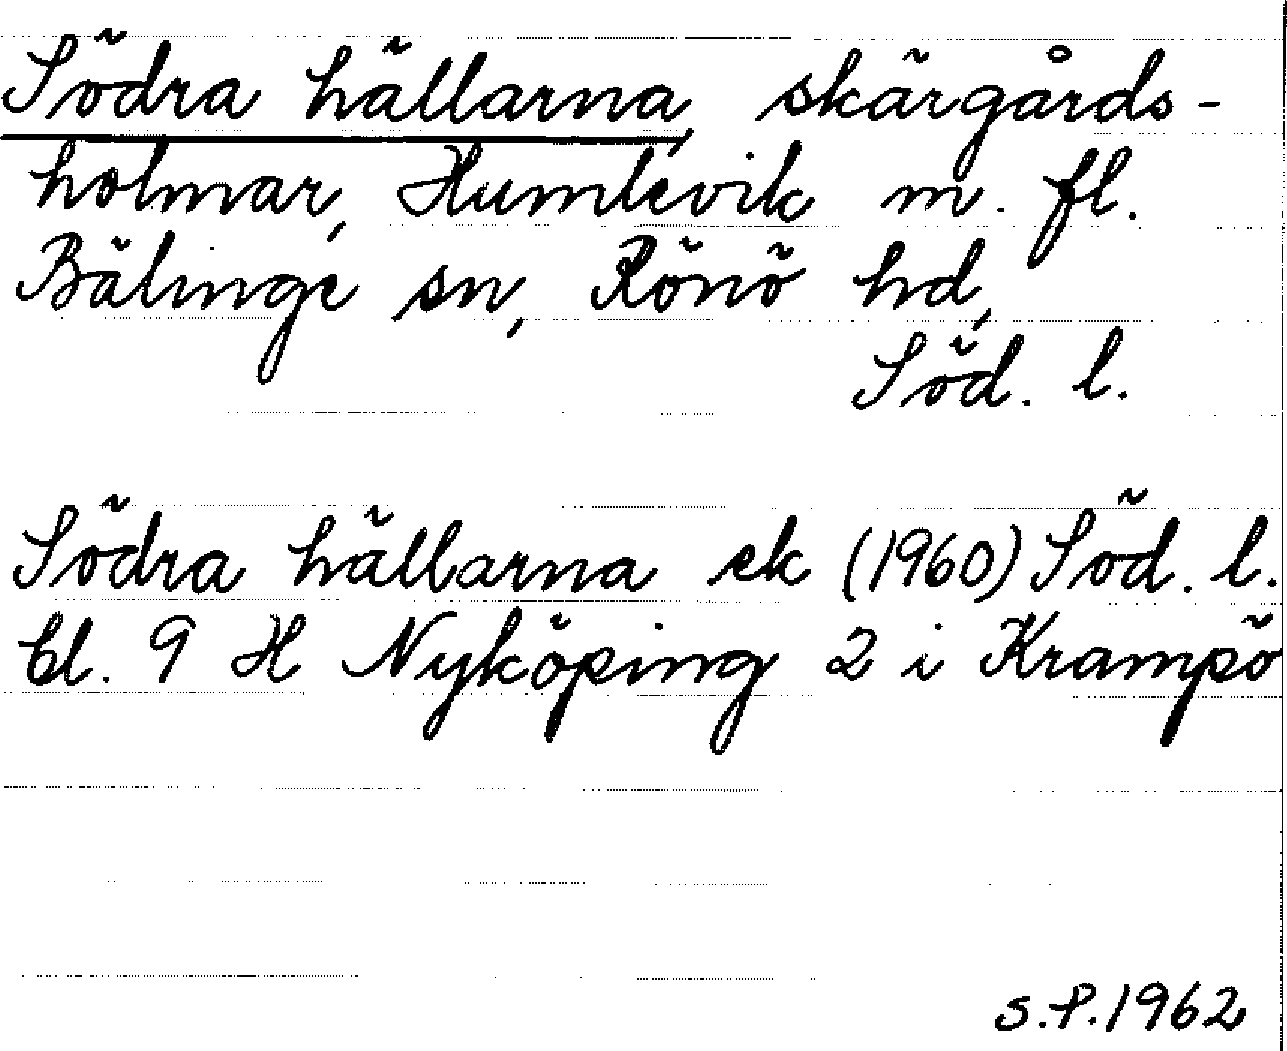 Södra hällarna, skärgårds-
holmar, Humlevik m. fl.
Bälinge sn, Rönö hd,
Söd. l.
Södra hällarna ek (1960) Söd. l.
bl. 9 H Nyköping 2 i Krampö
S.P. 1962